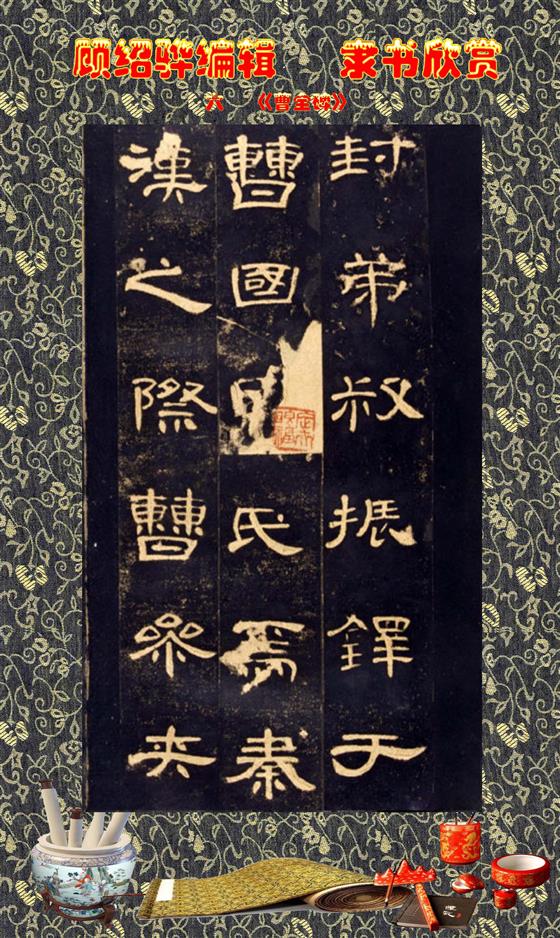 顾绍骅编辑 隶书欣赏
六 《曹全碑》
封弟叔振鐸于
曹國氏焉秦
漢之際曹參夾